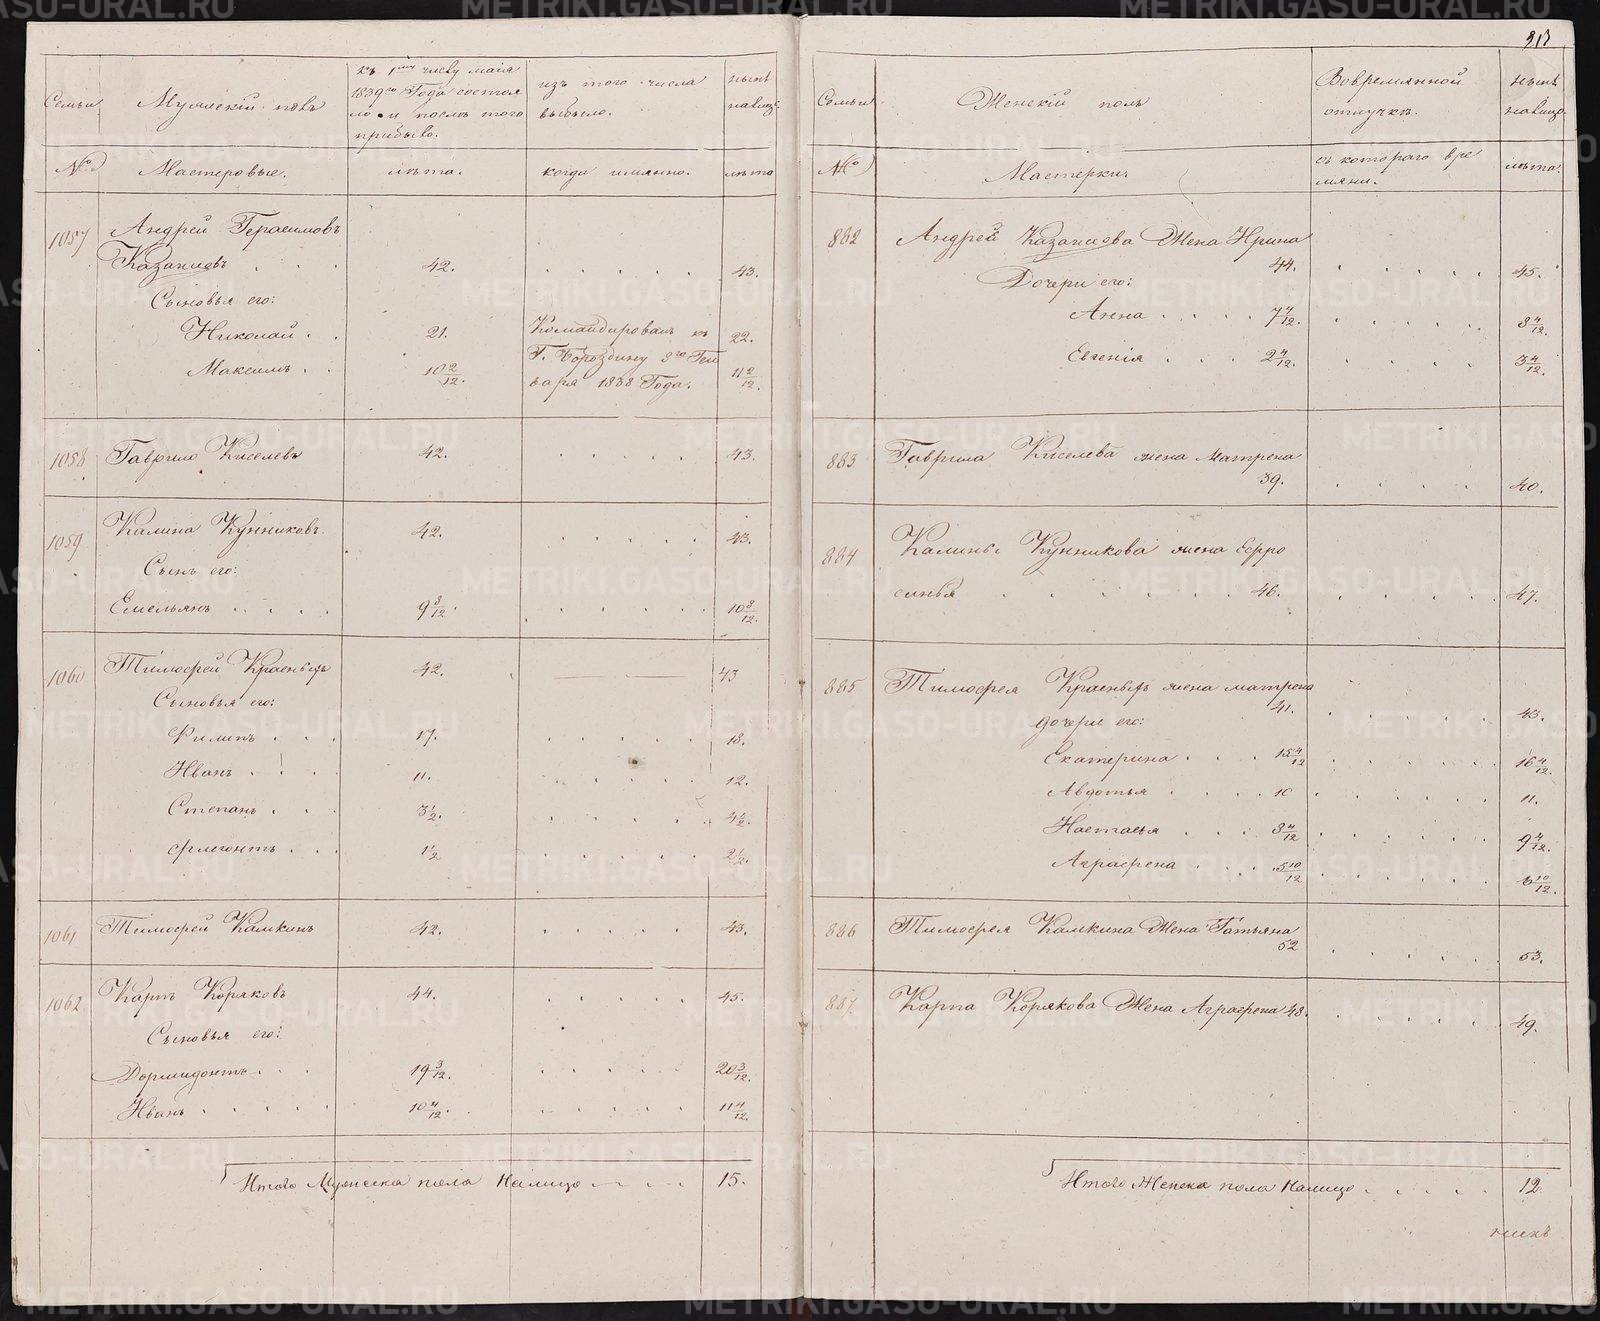 313
Семьи
Мужескій полъ
къ 1му числу маія
1839го Года состоя
ло и послѣ того
прибыло.
изъ того числа
выбыло.
нынѣ
налицо
№
Мастеровые.
лѣта.
когда имянно.
лѣта
1057
Андрей Герасимовъ
Казанцовъ . . . 42. . . . . . 43.
Сыновья его:
Николай . . 21. Командированъ къ 22.
Максимъ . . 10 2/12. Г. Бороздину 3го Ген
варя 1838 Года. 11 2/12.
1058 Гаврило Киселевъ 42. . . . . . 43.
1059 Калина Кунниковъ. 42. . . . . . 43.
Сынъ его:
Емельянъ . . . . . 9 8/12. . . . . . 10 8/12.
1060 Тимофей Красныхъ 42. 43
Сыновья его:
Филипъ . . . 17. . . . . . 18.
Иванъ . . . . 11. . . . . . 12.
Степанъ . . . 3 1/2. . . . . . 4 1/2.
Флегонтъ . . . 1 1/2 . . . . . 2 1/2.
1061 Тимофей Камкинъ 42. . . . . . 43.
1062 Карпъ Коряковъ 44. . . . . . 45.
Сыновья его:
Дормидонтъ . . . 19 3/12. . . . . . 20 3/12.
Иванъ . . . . . 10 4/12. . . . . . 11 4/12.
Итого Мужеска пола Налицо . . . . 15.
Семьи
Женскій полъ
Вовремянной
отлучкѣ.
нынѣ
налицо.
№
Мастерки.
съ котораго вре
мяни.
лѣта.
882 Андрей Казанцова Жена Ирина
44. . . . . . 45.
Дочери его:
Анна . . . . 7 4/12. . . . . . 8 4/12.
Евгенія . . . 2 4/12. . . . . . 3 4/12.
883 Гаврила Киселева жена Матрена
39. . . . . 40.
884 Калины Кунникова жена Ефро
синья . . . . . . 46. . . . . . 47.
885 Тимофея Красныхъ жена матрена
дочери его: 41. . . . . . 43.
Екатерина . . . 15 4/12 . . . . . 16 4/12.
Авдотья . . . . 10 . . . . . 11.
Настасья . . . 8 4/12 . . . . . 9 4/12.
Аграфена . . . 5 10/12 . . . . . 6 10/12.
886 Тимофея Камкина Жена Татьяна
52 . . . . . 53.
887 Карпа Корякова Жена Аграфена 48. . . . . . 49.
Итого Женска пола Налицо . . . . . 12.
METRIKI.GASO-URAL.RU